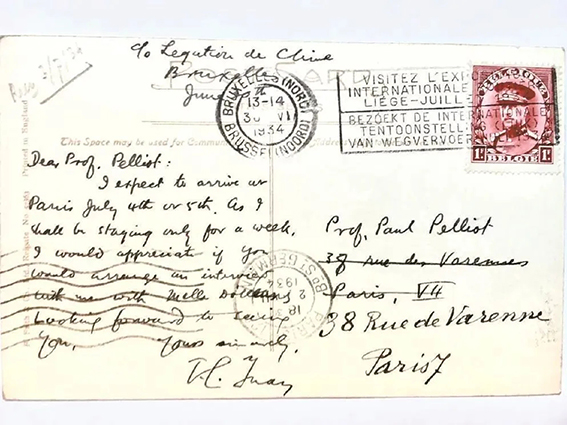 c/o Legation de Chine
Bruxelles
June
POST CARD
BRUXELLES (NORD)
13-14
30 VI
1934
BRUSSEL (NOORD)
VISITEZ L'EXPOS
INTERNATIONALE
LIÈGE-JUILL
BEZOEKT DE INTERNATIONALE
TENTOONSTELL
VAN WEGVERVOER
BELGIQUE
1F BELGIË 1F
This Space may be used for Commun
Address
Printed in England
Dear Prof. Pelliot:
I expect to arrive at
Paris July 4th or 5th. As I
shall be staying only for a week,
I would appreciate if you
would arrange an interview
with me with Melle
Looking forward to seeing
you,
Yours sincerely,
Bd St GERMAIN
18
2
1934
PARIS
Prof. Paul Pelliot
38 rue des Varennes
Paris, VII
38 Rue de Varenne
Paris 7